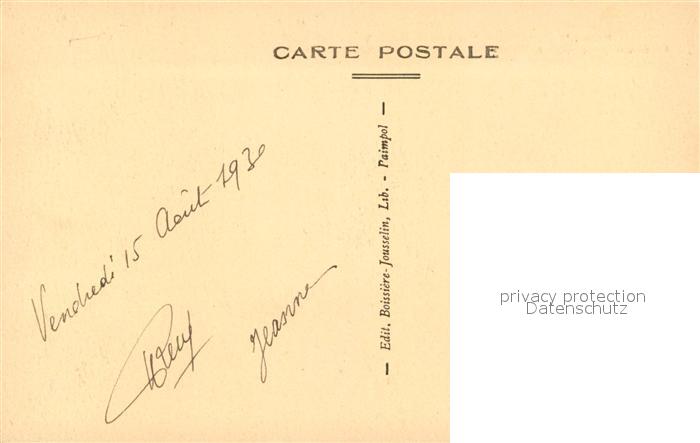 CARTE POSTALE
Vendredi 15 Août 1930
Jeanne
Edit. Boissière-Jousselin, Lib. - Paimpol
privacy protection
Datenschutz